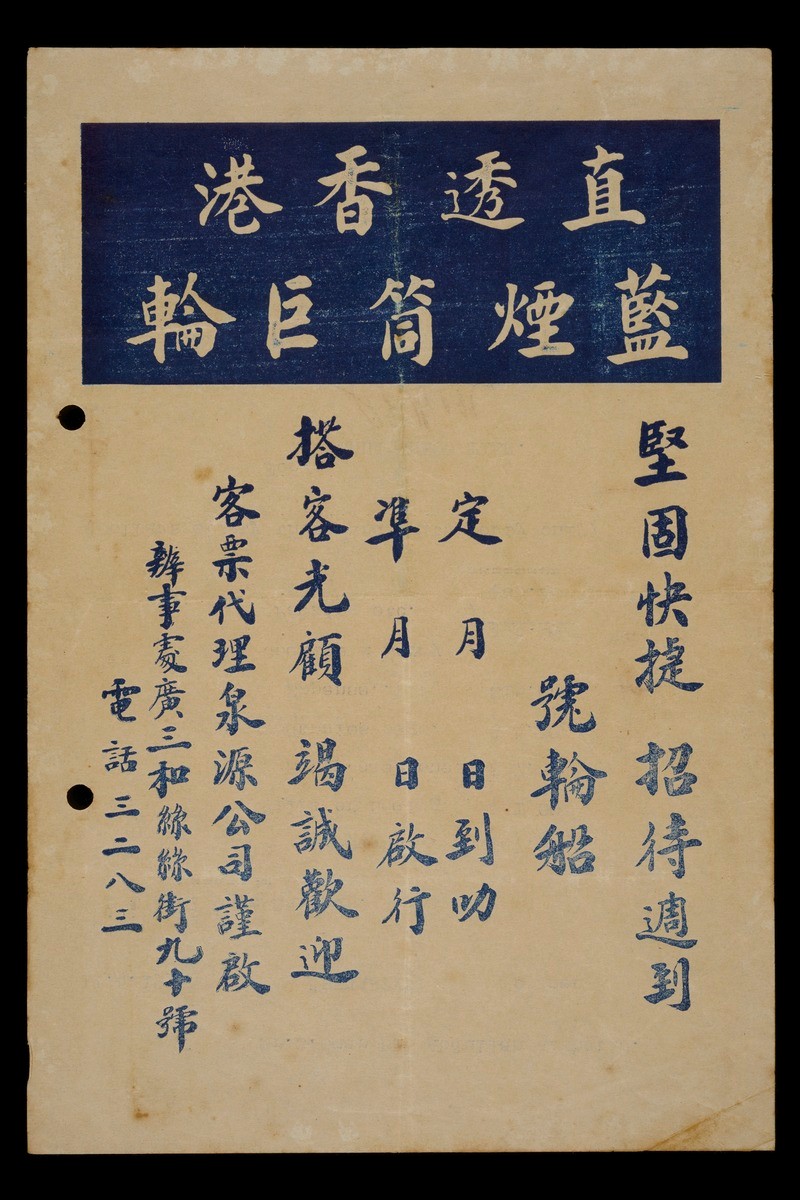 直透香港
藍煙筒巨輪
堅固快捷 招待週到
號輪船
定 月 日到叻
凖 月 日啟行
搭客光顧 竭誠歡迎
客票代理泉源公司謹啟
辦事處廣三和絲絲街九十號
電話三二八三